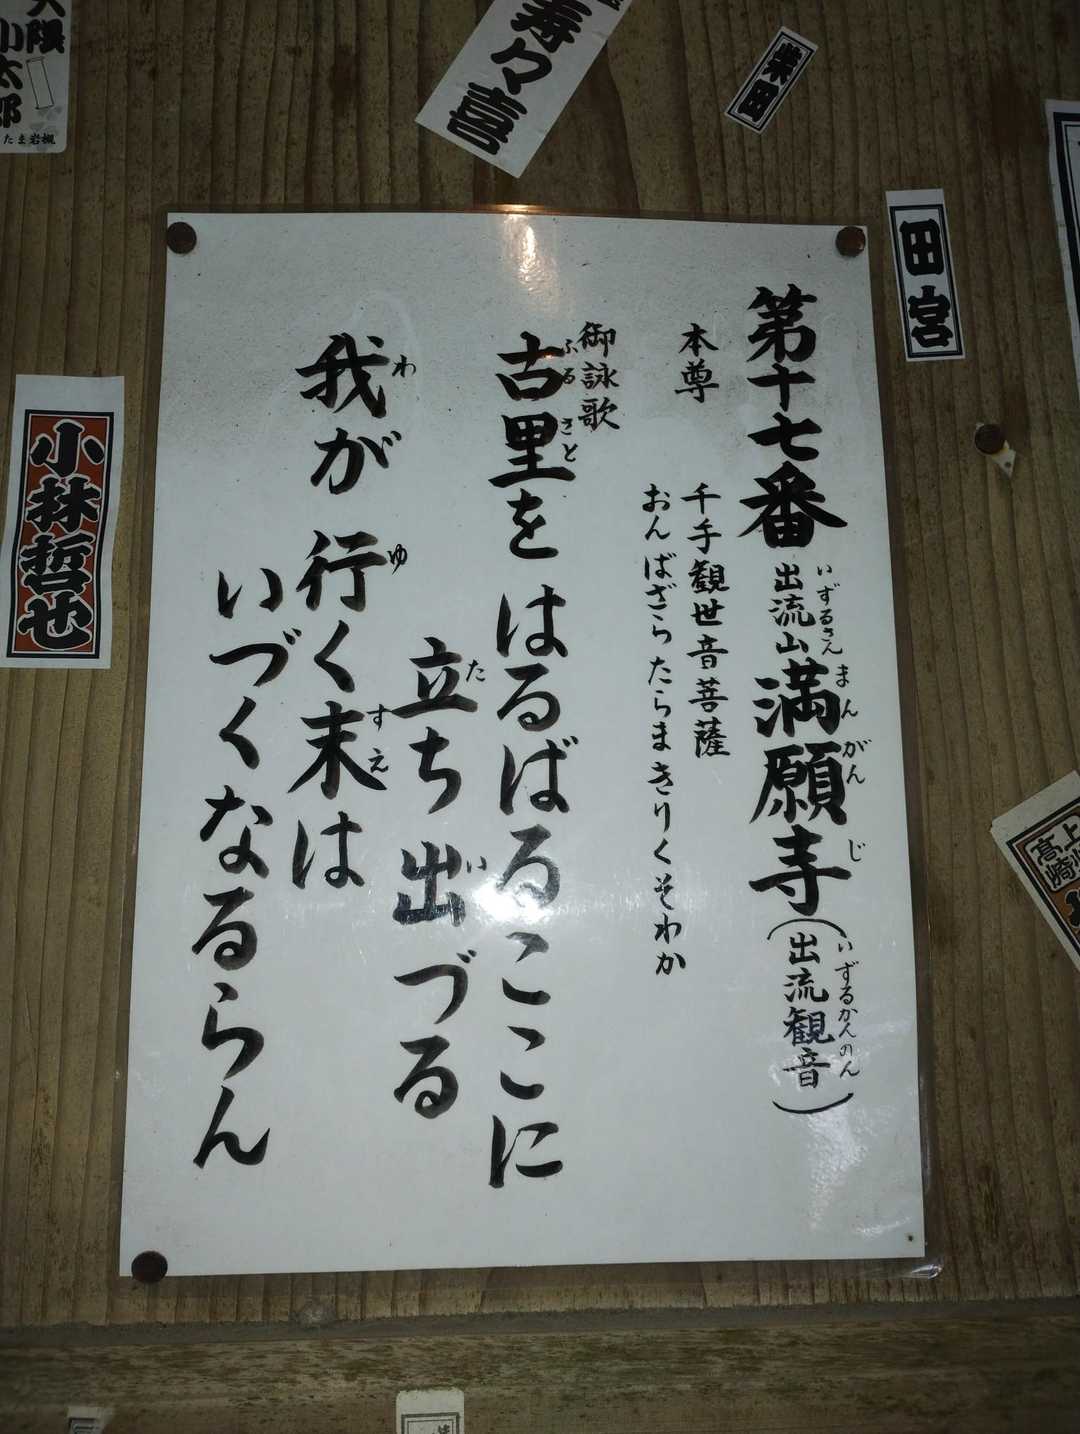 第十七番 出流山満願寺(出流観音)
いずるさん まんがんじ いずるかんのん
本尊 千手観世音菩薩
おんばざらたらまきりくそわか
御詠歌
古里をはるばるここに
ふるさと
立ち出づる
た い
我が行く末は
わ ゆ すえ
いづくなるらん
寿々喜
柴田
田宮
小林哲也
小太郎
たま岩槻
高崎